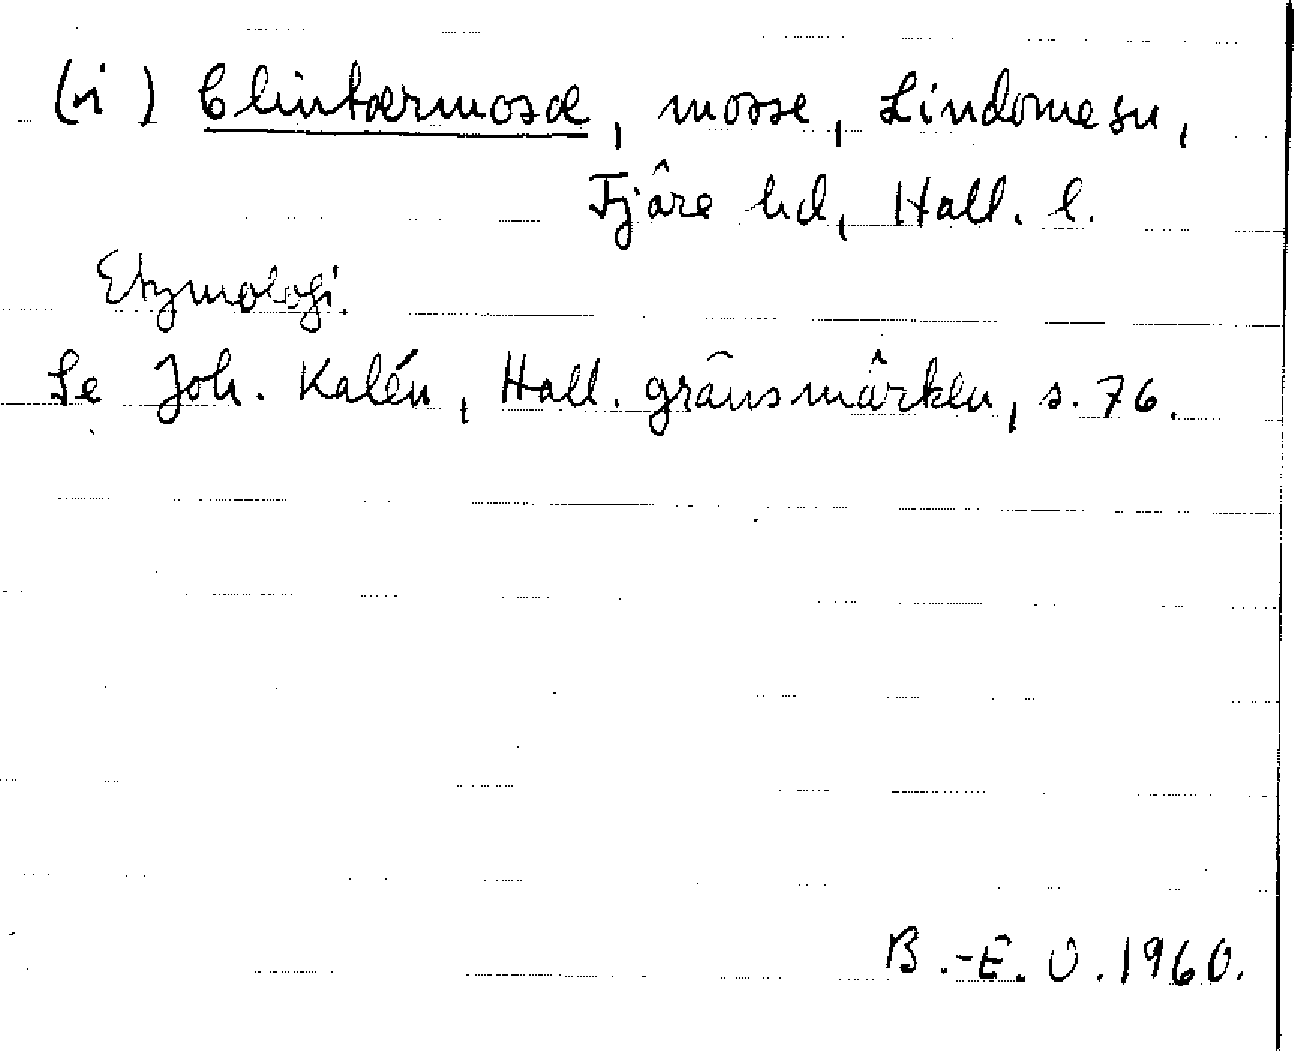 (i) blintærmosæ, mosse, Lindome sn,
Fjäre hd, Hall. l.
Etymologi.
Se Joh. Kalén, Hall. gränsmärken, s. 76.
B.-E. O. 1960.